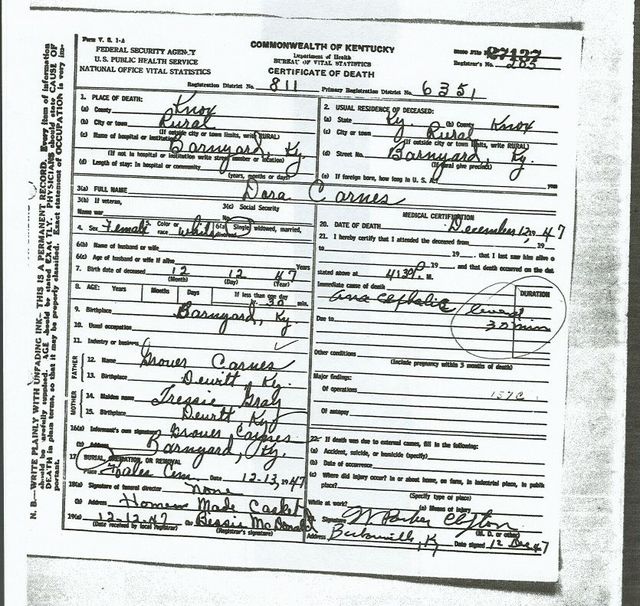 Form V. S. 1-A
FEDERAL SECURITY AGENCY
U. S. PUBLIC HEALTH SERVICE
NATIONAL OFFICE VITAL STATISTICS
COMMONWEALTH OF KENTUCKY
Department of Health
BUREAU OF VITAL STATISTICS
CERTIFICATE OF DEATH
Registrar's No. 265
Registration District No. 811 Primary Registration District No. 6351
N. B.—WRITE PLAINLY WITH UNFADING INK—THIS IS A PERMANENT RECORD. Every item of information
should be carefully supplied. AGE should be stated EXACTLY. PHYSICIANS should state CAUSE OF
DEATH in plain terms, so that it may be properly classified. Exact statement of OCCUPATION is very im-
portant.
1. PLACE OF DEATH:
(a) County Knox
(b) City or town Rural
(If outside city or town limits, write RURAL)
(c) Name of hospital or institution: Barnyard, Ky.
(If not in hospital or institution write street number or location)
(d) Length of stay: In hospital or community
(years, months or days)
2. USUAL RESIDENCE OF DECEASED:
(a) State Ky. (b) County Knox
(c) City or town Rural
(If outside city or town limits, write RURAL)
(d) Street No. Barnyard, Ky.
(If rural give precinct)
(e) If foreign born, how long in U. S. A.? years
3(a) FULL NAME Dora Carnes
3(b) If veteran, Name war 3(c) Social Security No.
4. Sex Female 5. Color or race white 6(a) Single, widowed, married,
6(b) Name of husband or wife
6(c) Age of husband or wife if alive
7. Birth date of deceased 12 12 47
(Month) (Day) (Year)
8. AGE: Years Months Days If less than one day 30 min.
9. Birthplace Barnyard, Ky.
10. Usual occupation
11. Industry or business
FATHER
12. Name Grover Carnes
13. Birthplace Dewitt Ky.
MOTHER
14. Maiden name Tressie Gray
15. Birthplace Dewitt Ky
16(a) Informant's own signature Grover Carnes
(b) Address Barnyard, Ky.
17. BURIAL, CREMATION, OR REMOVAL
Place Cem. Date 12-13, 1947
18(a) Signature of funeral director None
(b) Address Homem Made Casket
19(a) 12-12-47 (b) Bessie McDonald
(Date received by local Registrar) (Registrar's signature)
MEDICAL CERTIFICATION
20. DATE OF DEATH December 12, 1947
21. I hereby certify that I attended the deceased from 19
19 , that I last saw him alive o
19 and that death occurred on the dat
stated above at M.
Immediate cause of death DURATION
lived
30 min
Due to
Other conditions
(Include pregnancy within 3 months of death)
Major findings:
Of operations
Of autopsy
22. If death was due to external causes, fill in the following:
(a) Accident, suicide, or homicide (Specify)
(b) Date of occurrence
(c) Where did injury occur? in or about home, on farm, in industrial place, in public
place?
(Specify type of place)
While at work? (e) Means of injury
Signature W Parker Clifton
(M. D. or other)
Address Barbourville, Ky Date signed 12 Dec 47